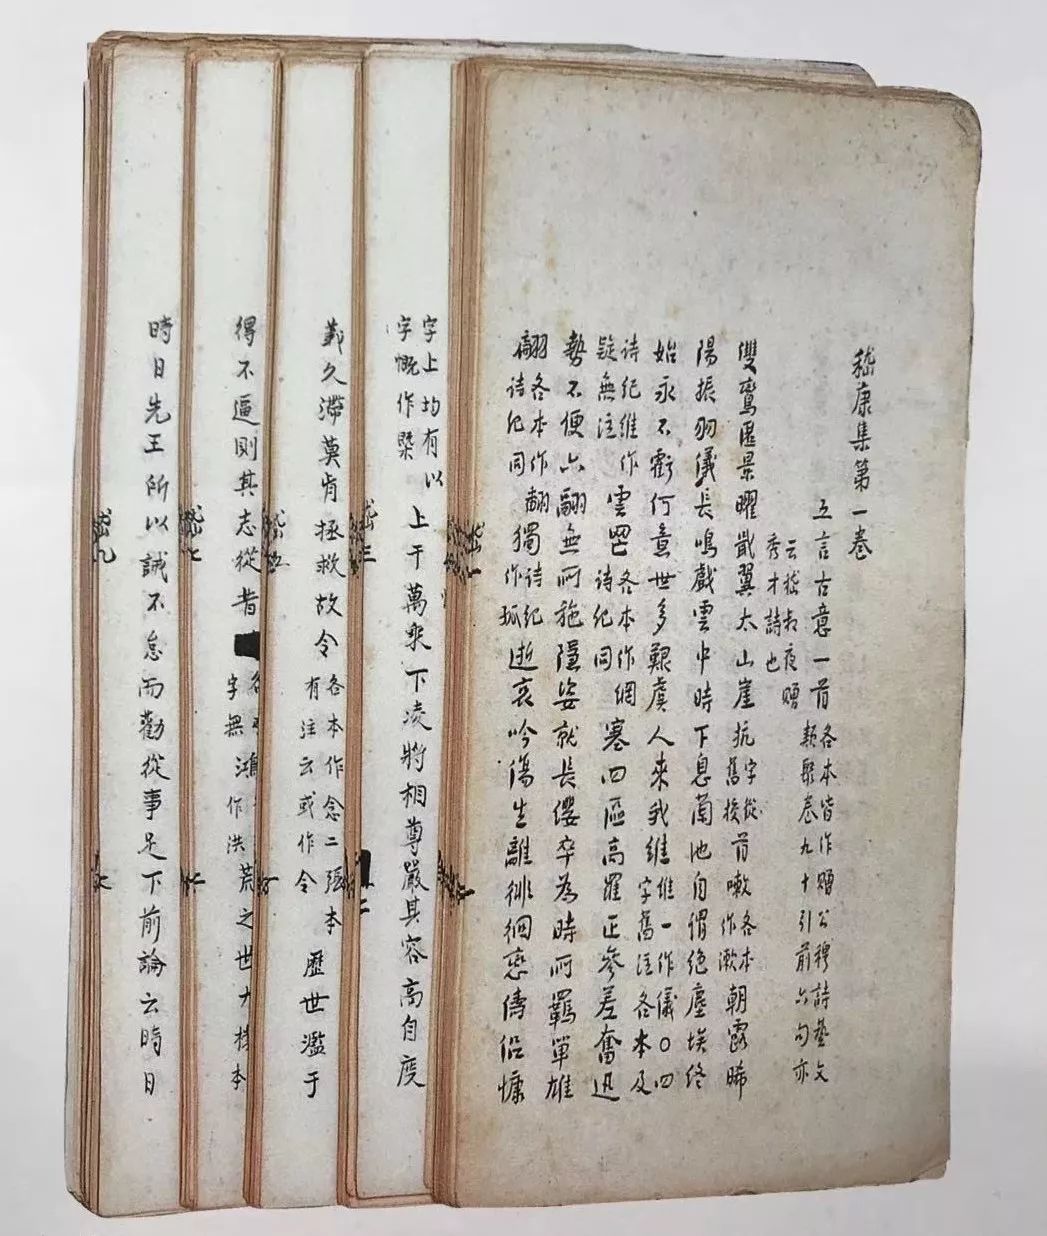 嵇康集第一卷
五言古意一首各本皆作贈公穆詩藝文
類聚卷九十引前六句亦
云嵇叔夜贈
秀才詩也
雙鸞匿景曜戢翼太山崖抗字從舊挍首嗽各本作漱朝露晞
陽振羽儀長鳴戲雲中時下息蘭池自謂絕塵埃終
始永不虧何意世多艱虞人來我維維一作儀○四字舊注各本及
詩紀維作疑無注雲罔各本作網詩紀同塞四區高羅正參差奮迅
勢不便六翮無所施隱姿就長纓卒為時所羈單雄
翩各本作翻詩紀同獨詩紀作孤逝哀吟傷生離徘徊戀儔侶慷
嵇一
字上均有以字慨作槩上干萬乘下凌將相尊嚴其容高自度
嵇三
二
義久滯莫肯拯救故令各本作念二張本有注云或作令歷世濫于
嵇
得不逼則其志從昔字無鴻作洪荒之世大樸本
嵇七
時日先王所以誡不怠而勸從事足下前論云時日
嵇九